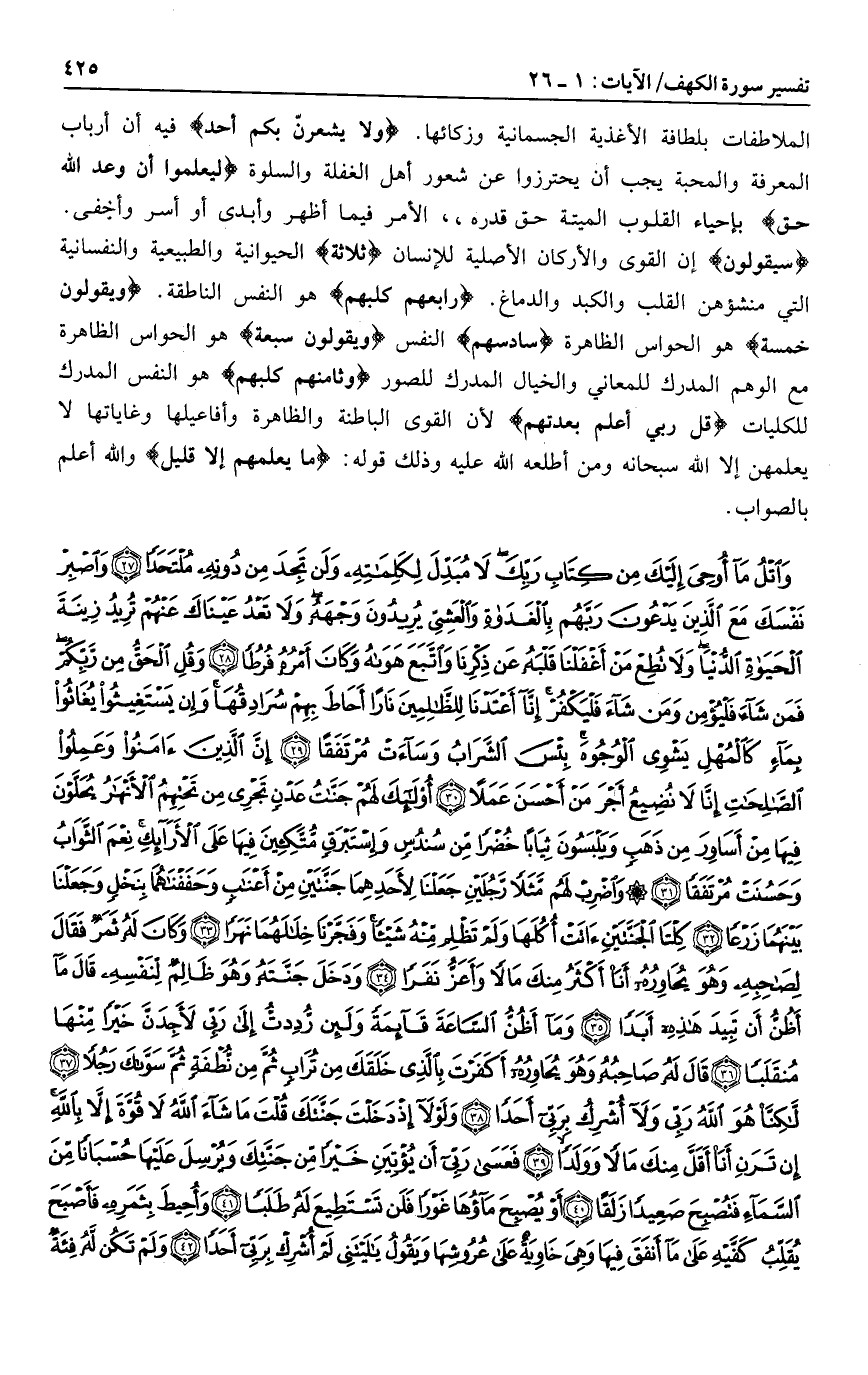 تفسير سورة الكهف/ الآيات: ١ - ٢٦ ٤٢٥
الملاطفات بلطافة الأغذية الجسمانية وزكائها. ﴿ولا يشعرنّ بكم أحد﴾ فيه أن أرباب
المعرفة والمحبة يجب أن يحترزوا عن شعور أهل الغفلة والسلوة ﴿ليعلموا أن وعد الله
حق﴾ بإحياء القلوب الميتة حق قدره ،، الأمر فيما أظهر وأبدى أو أسر وأخفى.
﴿سيقولون﴾ إن القوى والأركان الأصلية للإنسان ﴿ثلاثة﴾ الحيوانية والطبيعية والنفسانية
التي منشؤهن القلب والكبد والدماغ. ﴿رابعهم كلبهم﴾ هو النفس الناطقة. ﴿ويقولون
خمسة﴾ هو الحواس الظاهرة ﴿سادسهم﴾ النفس ﴿ويقولون سبعة﴾ هو الحواس الظاهرة
مع الوهم المدرك للمعاني والخيال المدرك للصور ﴿وثامنهم كلبهم﴾ هو النفس المدرك
للكليات ﴿قل ربي أعلم بعدتهم﴾ لأن القوى الباطنة والظاهرة وأفاعيلها وغاياتها لا
يعلمهن إلا الله سبحانه ومن أطلعه الله عليه وذلك قوله: ﴿ما يعلمهم إلا قليل﴾ والله أعلم
بالصواب.
وَاتْلُ مَا أُوحِيَ إِلَيْكَ مِن كِتَابِ رَبِّكَ لَا مُبَدِّلَ لِكَلِمَاتِهِ وَلَن تَجِدَ مِن دُونِهِ مُلْتَحَدًا ﴿٢٧﴾ وَاصْبِرْ
نَفْسَكَ مَعَ الَّذِينَ يَدْعُونَ رَبَّهُم بِالْغَدَاةِ وَالْعَشِيِّ يُرِيدُونَ وَجْهَهُ وَلَا تَعْدُ عَيْنَاكَ عَنْهُمْ تُرِيدُ زِينَةَ
الْحَيَاةِ الدُّنْيَا وَلَا تُطِعْ مَنْ أَغْفَلْنَا قَلْبَهُ عَن ذِكْرِنَا وَاتَّبَعَ هَوَاهُ وَكَانَ أَمْرُهُ فُرُطًا ﴿٢٨﴾ وَقُلِ الْحَقُّ مِن رَّبِّكُمْ
فَمَن شَاءَ فَلْيُؤْمِن وَمَن شَاءَ فَلْيَكْفُرْ إِنَّا أَعْتَدْنَا لِلظَّالِمِينَ نَارًا أَحَاطَ بِهِمْ سُرَادِقُهَا وَإِن يَسْتَغِيثُوا يُغَاثُوا
بِمَاءٍ كَالْمُهْلِ يَشْوِي الْوُجُوهَ بِئْسَ الشَّرَابُ وَسَاءَتْ مُرْتَفَقًا ﴿٢٩﴾ إِنَّ الَّذِينَ آمَنُوا وَعَمِلُوا
الصَّالِحَاتِ إِنَّا لَا نُضِيعُ أَجْرَ مَنْ أَحْسَنَ عَمَلًا ﴿٣٠﴾ أُولَٰئِكَ لَهُمْ جَنَّاتُ عَدْنٍ تَجْرِي مِن تَحْتِهِمُ الْأَنْهَارُ يُحَلَّوْنَ
فِيهَا مِنْ أَسَاوِرَ مِن ذَهَبٍ وَيَلْبَسُونَ ثِيَابًا خُضْرًا مِّن سُندُسٍ وَإِسْتَبْرَقٍ مُّتَّكِئِينَ فِيهَا عَلَى الْأَرَائِكِ نِعْمَ الثَّوَابُ
وَحَسُنَتْ مُرْتَفَقًا ﴿٣١﴾ ۞ وَاضْرِبْ لَهُم مَّثَلًا رَّجُلَيْنِ جَعَلْنَا لِأَحَدِهِمَا جَنَّتَيْنِ مِنْ أَعْنَابٍ وَحَفَفْنَاهُمَا بِنَخْلٍ وَجَعَلْنَا
بَيْنَهُمَا زَرْعًا ﴿٣٢﴾ كِلْتَا الْجَنَّتَيْنِ آتَتْ أُكُلَهَا وَلَمْ تَظْلِم مِّنْهُ شَيْئًا وَفَجَّرْنَا خِلَالَهُمَا نَهَرًا ﴿٣٣﴾ وَكَانَ لَهُ ثَمَرٌ فَقَالَ
لِصَاحِبِهِ وَهُوَ يُحَاوِرُهُ أَنَا أَكْثَرُ مِنكَ مَالًا وَأَعَزُّ نَفَرًا ﴿٣٤﴾ وَدَخَلَ جَنَّتَهُ وَهُوَ ظَالِمٌ لِّنَفْسِهِ قَالَ مَا
أَظُنُّ أَن تَبِيدَ هَٰذِهِ أَبَدًا ﴿٣٥﴾ وَمَا أَظُنُّ السَّاعَةَ قَائِمَةً وَلَئِن رُّدِدتُّ إِلَىٰ رَبِّي لَأَجِدَنَّ خَيْرًا مِّنْهَا
مُنقَلَبًا ﴿٣٦﴾ قَالَ لَهُ صَاحِبُهُ وَهُوَ يُحَاوِرُهُ أَكَفَرْتَ بِالَّذِي خَلَقَكَ مِن تُرَابٍ ثُمَّ مِن نُّطْفَةٍ ثُمَّ سَوَّاكَ رَجُلًا ﴿٣٧﴾
لَّٰكِنَّا هُوَ اللَّهُ رَبِّي وَلَا أُشْرِكُ بِرَبِّي أَحَدًا ﴿٣٨﴾ وَلَوْلَا إِذْ دَخَلْتَ جَنَّتَكَ قُلْتَ مَا شَاءَ اللَّهُ لَا قُوَّةَ إِلَّا بِاللَّهِ
إِن تَرَنِ أَنَا أَقَلَّ مِنكَ مَالًا وَوَلَدًا ﴿٣٩﴾ فَعَسَىٰ رَبِّي أَن يُؤْتِيَنِ خَيْرًا مِّن جَنَّتِكَ وَيُرْسِلَ عَلَيْهَا حُسْبَانًا مِّنَ
السَّمَاءِ فَتُصْبِحَ صَعِيدًا زَلَقًا ﴿٤٠﴾ أَوْ يُصْبِحَ مَاؤُهَا غَوْرًا فَلَن تَسْتَطِيعَ لَهُ طَلَبًا ﴿٤١﴾ وَأُحِيطَ بِثَمَرِهِ فَأَصْبَحَ
يُقَلِّبُ كَفَّيْهِ عَلَىٰ مَا أَنفَقَ فِيهَا وَهِيَ خَاوِيَةٌ عَلَىٰ عُرُوشِهَا وَيَقُولُ يَا لَيْتَنِي لَمْ أُشْرِكْ بِرَبِّي أَحَدًا ﴿٤٢﴾ وَلَمْ تَكُن لَّهُ فِئَةٌ